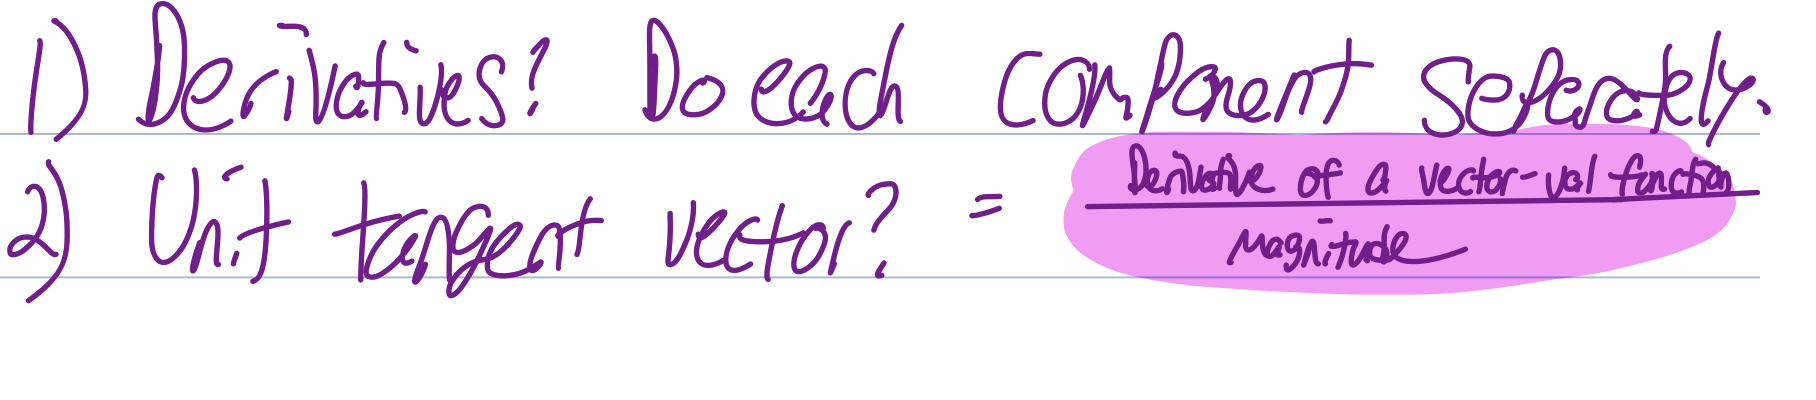 1) Derivatives? Do each component separately.
2) Unit tangent vector? = Derivative of a vector-val function
Magnitude